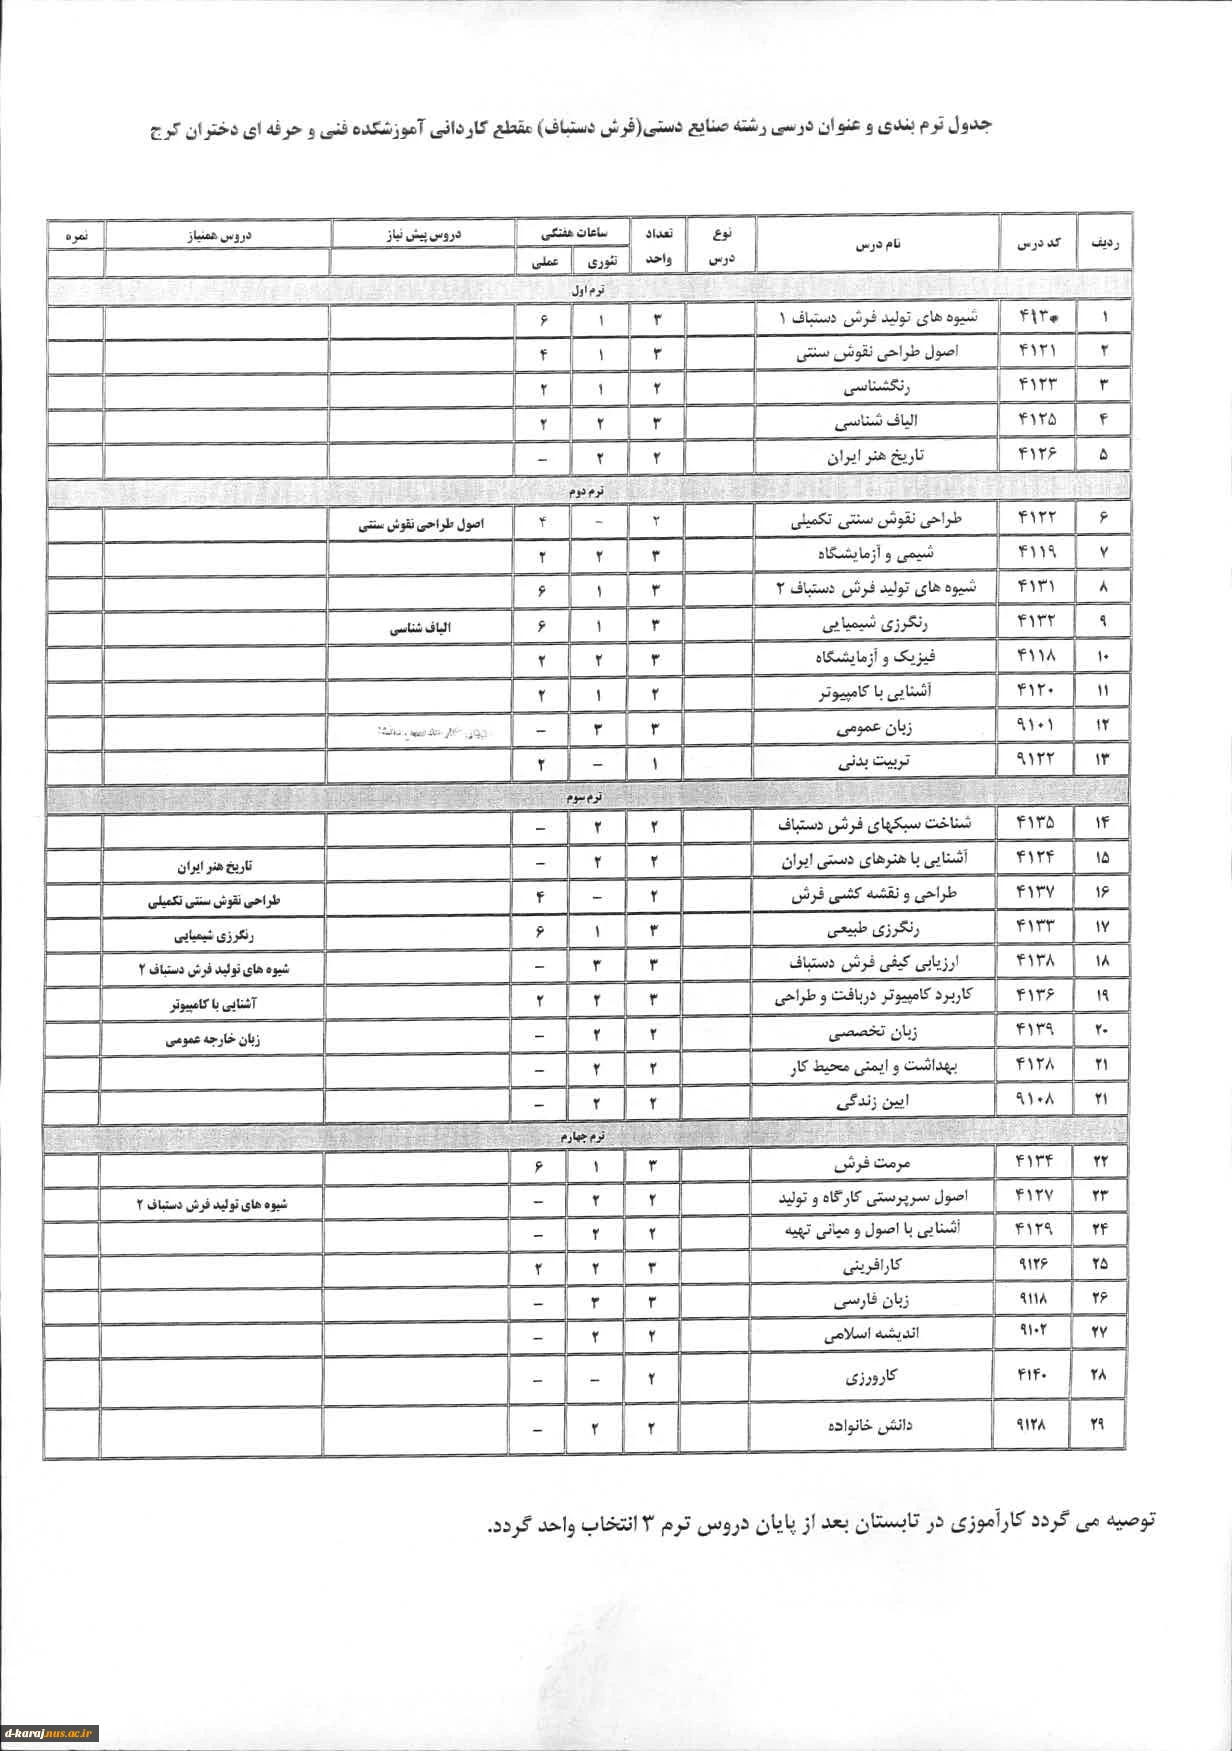 جدول ترم بندی و عنوان درسی رشته صنایع دستی(فرش دستباف) مقطع کاردانی آموزشکده فنی و حرفه ای دختران کرج
ردیف کد درس نام درس نوع درس تعداد واحد ساعات هفتگی دروس پیش نیاز دروس همنیاز نمره
تئوری عملی
ترم اول
۱ ۴۱۳۰ شیوه های تولید فرش دستباف ۱ ۳ ۱ ۶
۲ ۴۱۲۱ اصول طراحی نقوش سنتی ۳ ۱ ۴
۳ ۴۱۲۳ رنگشناسی ۲ ۱ ۲
۴ ۴۱۲۵ الیاف شناسی ۳ ۲ ۲
۵ ۴۱۲۶ تاریخ هنر ایران ۲ ۲ –
ترم دوم
۶ ۴۱۲۲ طراحی نقوش سنتی تکمیلی ۲ – ۴ اصول طراحی نقوش سنتی
۷ ۴۱۱۹ شیمی و آزمایشگاه ۳ ۲ ۲
۸ ۴۱۳۱ شیوه های تولید فرش دستباف ۲ ۳ ۱ ۶
۹ ۴۱۳۲ رنگرزی شیمیایی ۳ ۱ ۶ الیاف شناسی
۱۰ ۴۱۱۸ فیزیک و آزمایشگاه ۳ ۲ ۲
۱۱ ۴۱۲۰ آشنایی با کامپیوتر ۲ ۱ ۲
۱۲ ۹۱۰۱ زبان عمومی ۳ ۳ –
۱۳ ۹۱۲۲ تربیت بدنی ۱ – ۲
ترم سوم
۱۴ ۴۱۳۵ شناخت سبکهای فرش دستباف ۲ ۲ –
۱۵ ۴۱۲۴ آشنایی با هنرهای دستی ایران ۲ ۲ – تاریخ هنر ایران
۱۶ ۴۱۳۷ طراحی و نقشه کشی فرش ۲ – ۴ طراحی نقوش سنتی تکمیلی
۱۷ ۴۱۳۳ رنگرزی طبیعی ۳ ۱ ۶ رنگرزی شیمیایی
۱۸ ۴۱۳۸ ارزیابی کیفی فرش دستباف ۳ ۳ – شیوه های تولید فرش دستباف ۲
۱۹ ۴۱۳۶ کاربرد کامپیوتر دربافت و طراحی ۳ ۲ ۲ آشنایی با کامپیوتر
۲۰ ۴۱۳۹ زبان تخصصی ۲ ۲ – زبان خارجه عمومی
۲۱ ۴۱۲۸ بهداشت و ایمنی محیط کار ۲ ۲ –
۲۱ ۹۱۰۸ ایین زندگی ۲ ۲ –
ترم چهارم
۲۲ ۴۱۳۴ مرمت فرش ۳ ۱ ۶
۲۳ ۴۱۲۷ اصول سرپرستی کارگاه و تولید ۲ ۲ – شیوه های تولید فرش دستباف ۲
۲۴ ۴۱۲۹ آشنایی با اصول و مبانی تهیه ۲ ۲ –
۲۵ ۹۱۲۶ کارافرینی ۳ ۲ ۲
۲۶ ۹۱۱۸ زبان فارسی ۳ ۳ –
۲۷ ۹۱۰۲ اندیشه اسلامی ۲ ۲ –
۲۸ ۴۱۴۰ کارورزی ۲ – –
۲۹ ۹۱۲۸ دانش خانواده ۲ ۲ –
توصیه می گردد کارآموزی در تابستان بعد از پایان دروس ترم ۳ انتخاب واحد گردد.
d-karaj.nus.ac.ir